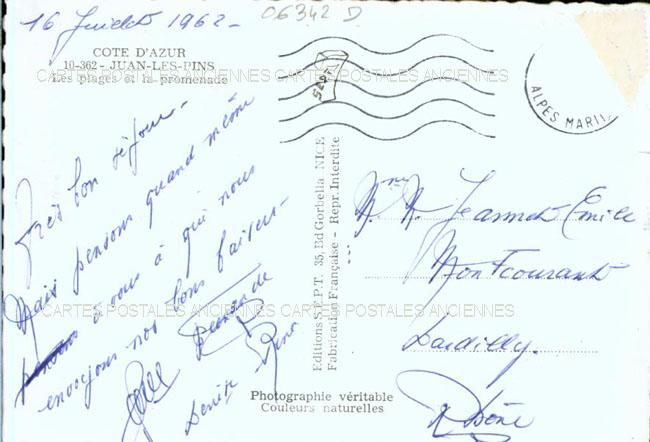 16 Juillet 1962-
06342 D
COTE D'AZUR
10-362 - JUAN-LES-PINS
Les plages et la promenade
CARTES POSTALES ANCIENNES CARTES POSTALES ANCIENNES
SEPT
ALPES MARIT
Très bon séjour-
Mais pensons quand même
à vous à qui nous
envoyons nos bons baisers-
Denise
Editions S.E.P.T. 35, Bd Gorbella NICE
Fabrication Française - Repr. Interdite
Mme M. Jeannet Emile
Montcourant
Dardilly.
Rhône
CARTES POSTALES ANCIENNES CARTES POSTALES ANCIENNES
Photographie véritable
Couleurs naturelles